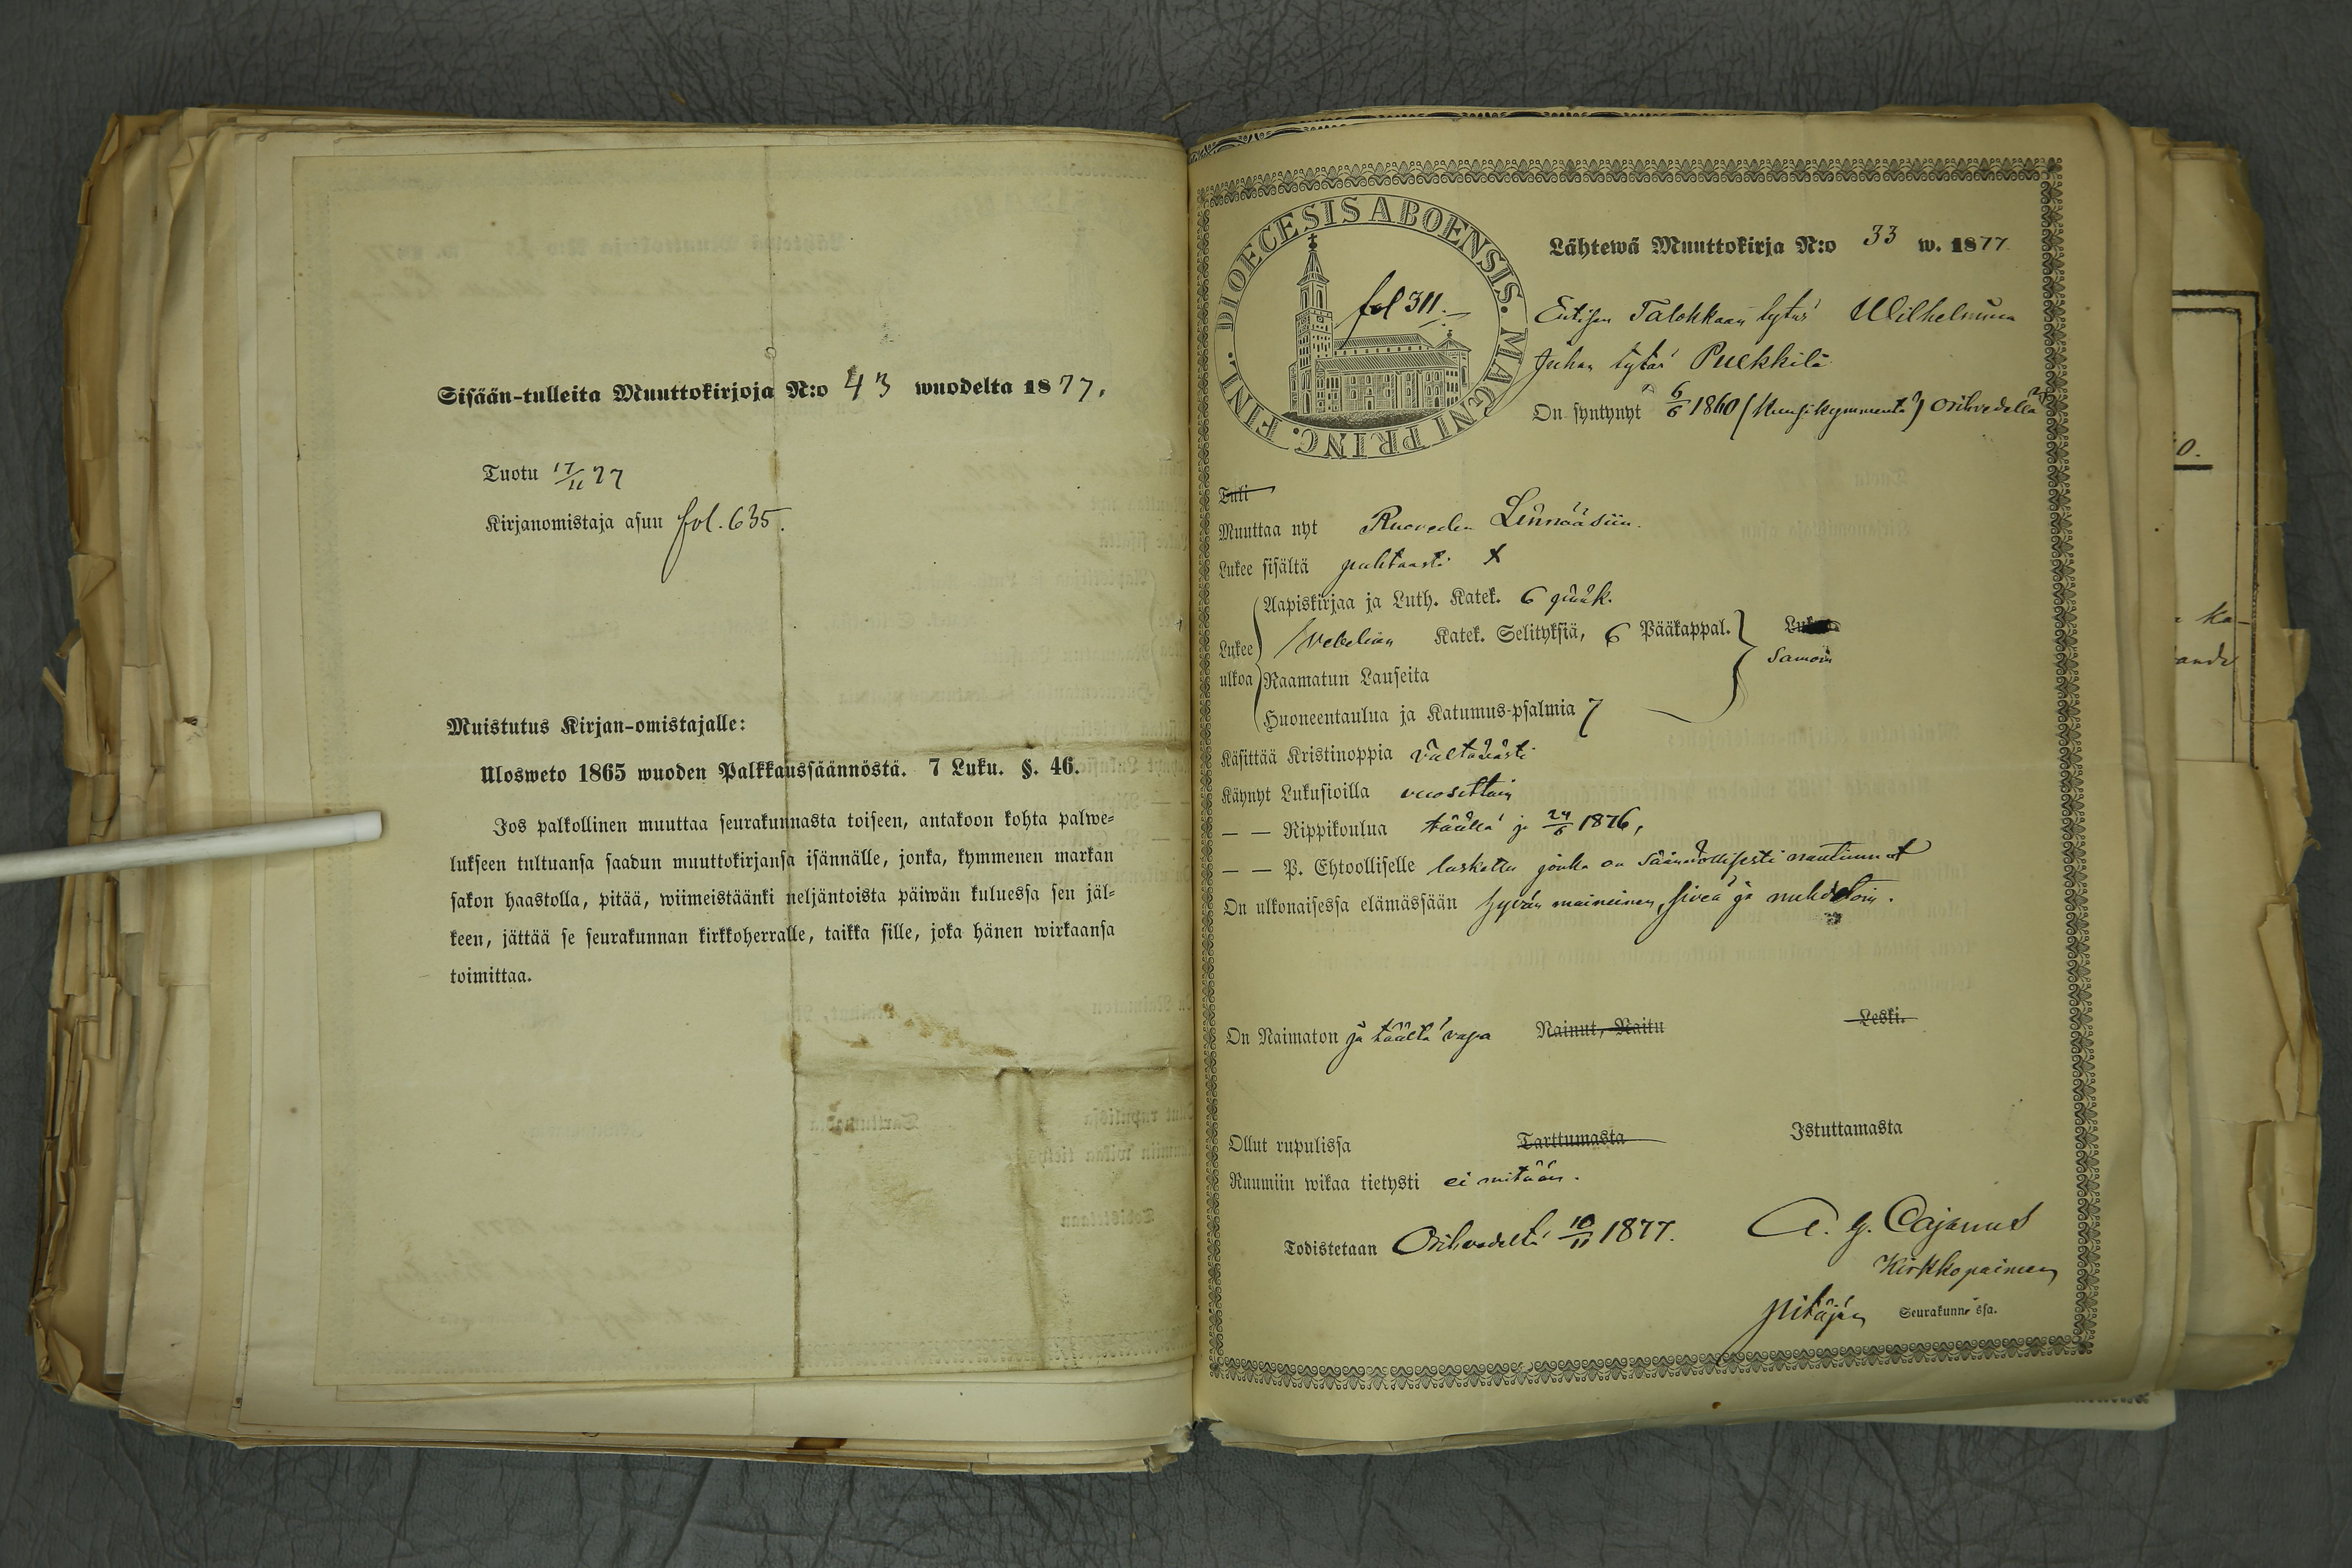 Sisään-tulleita Muuttokirjoja N:o 43 wuodelta 1877.
Tuotu 17/11 77
Kirjanomistaja asuu fol. 635.
Muistutus Kirjan-omistajalle:
Ulosweto 1865 wuoden Palkkaussäännöstä. 7 Luku. §. 46.
Jos palkollinen muuttaa seurakunnasta toiseen, antakoon kohta palwe=
lukseen tultuansa saadun muuttokirjansa isännälle, jonka, kymmenen markan
sakon haastolla, pitää, wiimeistäänki neljäntoista päiwän kuluessa sen jäl=
keen, jättää se seurakunnan kirkkoherralle, taikka sille, joka hänen wirkaansa
toimittaa.
DIOECESIS ABOENSIS. MAGNI PRINC. FINL.
fol 311.
Lähtewä Muuttokirja N:o 33 w. 1877
Entisen Talokkaan tytär Wilhelmiina
Juhan tytär Pukkilä
On syntynyt 6/6 1860 (Kuusikymmentä) Orihvedellä
Tuli
Muuttaa nyt Ruoveden Linnääsiin.
Lukee sisältä puhtaasti x
Lukee ulkoa
Aapiskirjaa ja Luth. Katek. 6 pääk.
Svebeliun Katek. Selityksiä, 6 Pääkappal.
Samoin
Raamatun Lauseita
Huoneentaulua ja Katumus-psalmia 7
Käsittää Kristinoppia välttävästi
Käynyt Lukusioilla vuosittain
— — Rippikoulua täällä ja 24/6 1876,
— — P. Ehtoolliselle laskettu jonka on säännöllisesti nautinnut
On ulkonaisessa elämässään hyvän maineinen, siveä ja nuhdetoin.
On Naimaton ja täältä vapa Nainut, Naitu Leski.
Ollut rupulissa Tarttumasta Istuttamasta
Ruumiin wikaa tietysti ei mitään.
Todistetaan Orihvedeltä 10/11 1877. A. G. Cajanus
Kirkkopaimen
Pitäjän Seurakunnassa.